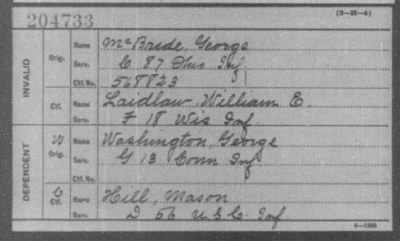 (3-85-a)
204733
INVALID
Orig. Name McBride, George
Serv. C 87 Ohio Inf
Ctf. No. 568823
Ctf. Name Laidlaw, William E.
Serv. F 18 Wis Inf
DEPENDENT
W Orig. Name Washington, George
Serv. G 13 Conn Inf
Ctf. No.
C Ctf. Name Hill, Mason
Serv. D 56 U S C. Inf
6-1303